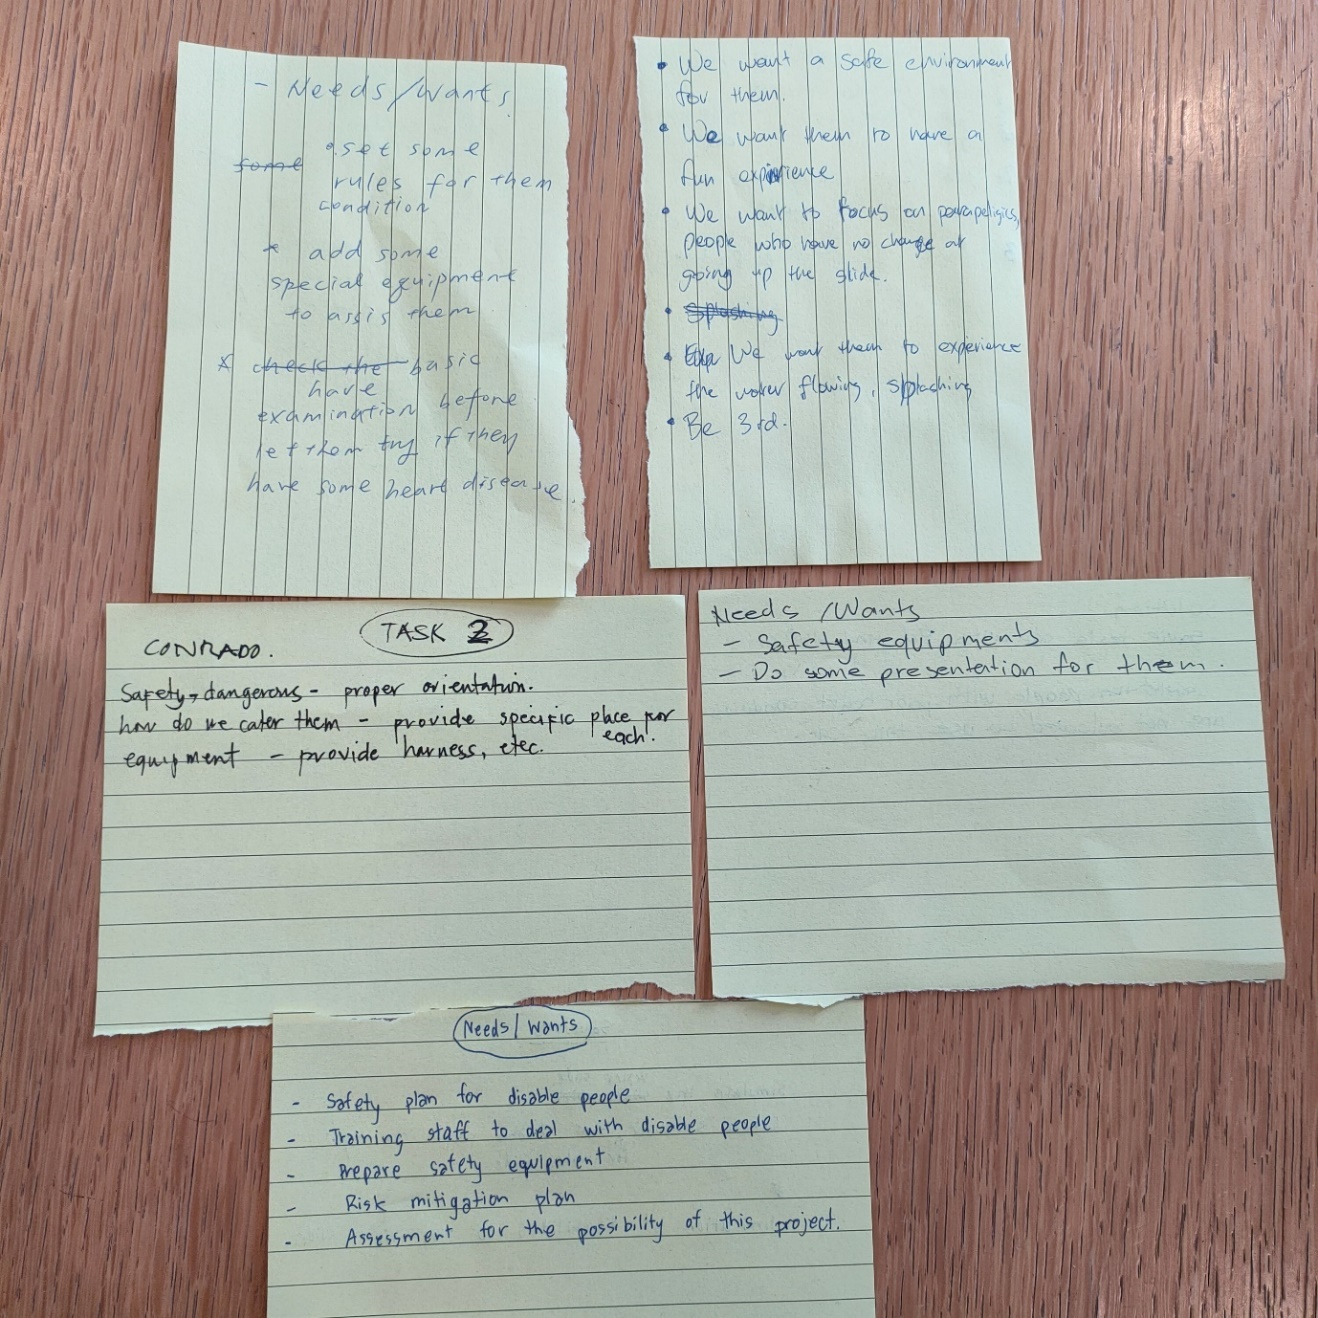 - Needs/Wants
• set some
some
rules for them
condition
* add some
special equipment
to assis them
* check the basic
have
examination before
let them try if they
have some heart disease.
• We want a safe environment
for them.
• We want them to have a
fun experience
• We want to focus on
people who have no at
going up the slide.
• Splashing
• We want them to experience
the water flowing, splashing
• Be 3rd.
TASK 2
CONRADO.
Safety, dangerous - proper orientation.
how do we cater them - provide specific place for
each.
equipment - provide harness, etec.
Needs /Wants
- Safety equipments
- Do some presentation for them.
Needs/Wants
- Safety plan for disable people
- Training staff to deal with disable people
- Prepare safety equipment
- Risk mitigation plan
- Assessment for the possibility of this project.